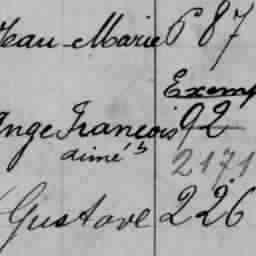 Jean-Marie 687
Exemp
Ange François 92
aimé 2171
Gustave 226